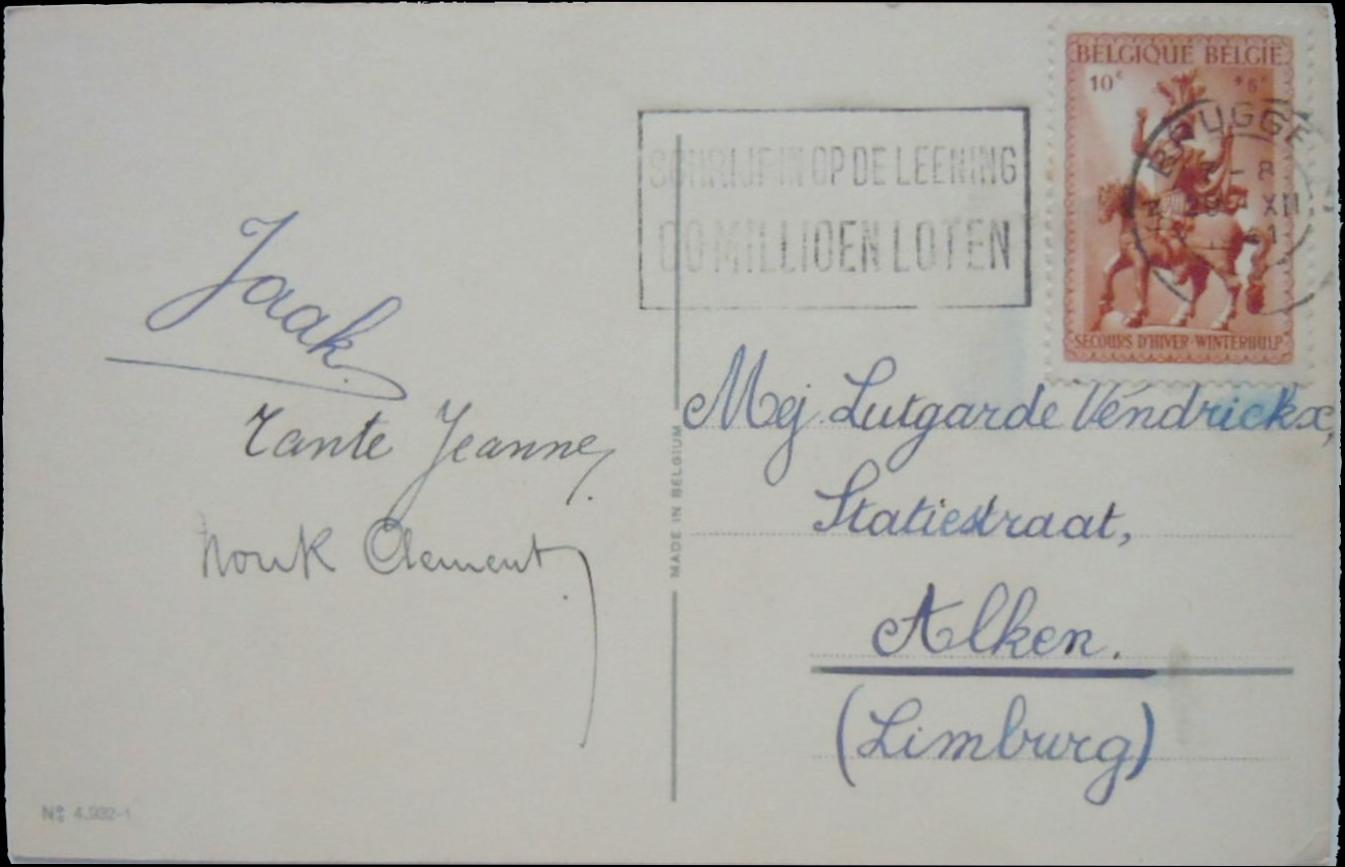 BELGIQUE BELGIE
10c +5c
SECOURS D'HIVER-WINTERHULP
BRUGGE
7-8
29 XII
41
SCHRIJF IN OP DE LEENING
00 MILLIOEN LOTEN
Jaak
Tante Jeanne,
Nonk Clement
MADE IN BELGIUM
Mej. Lutgarde Vendrickx,
Statiestraat,
Alken.
(Limburg)
No 4.932-1